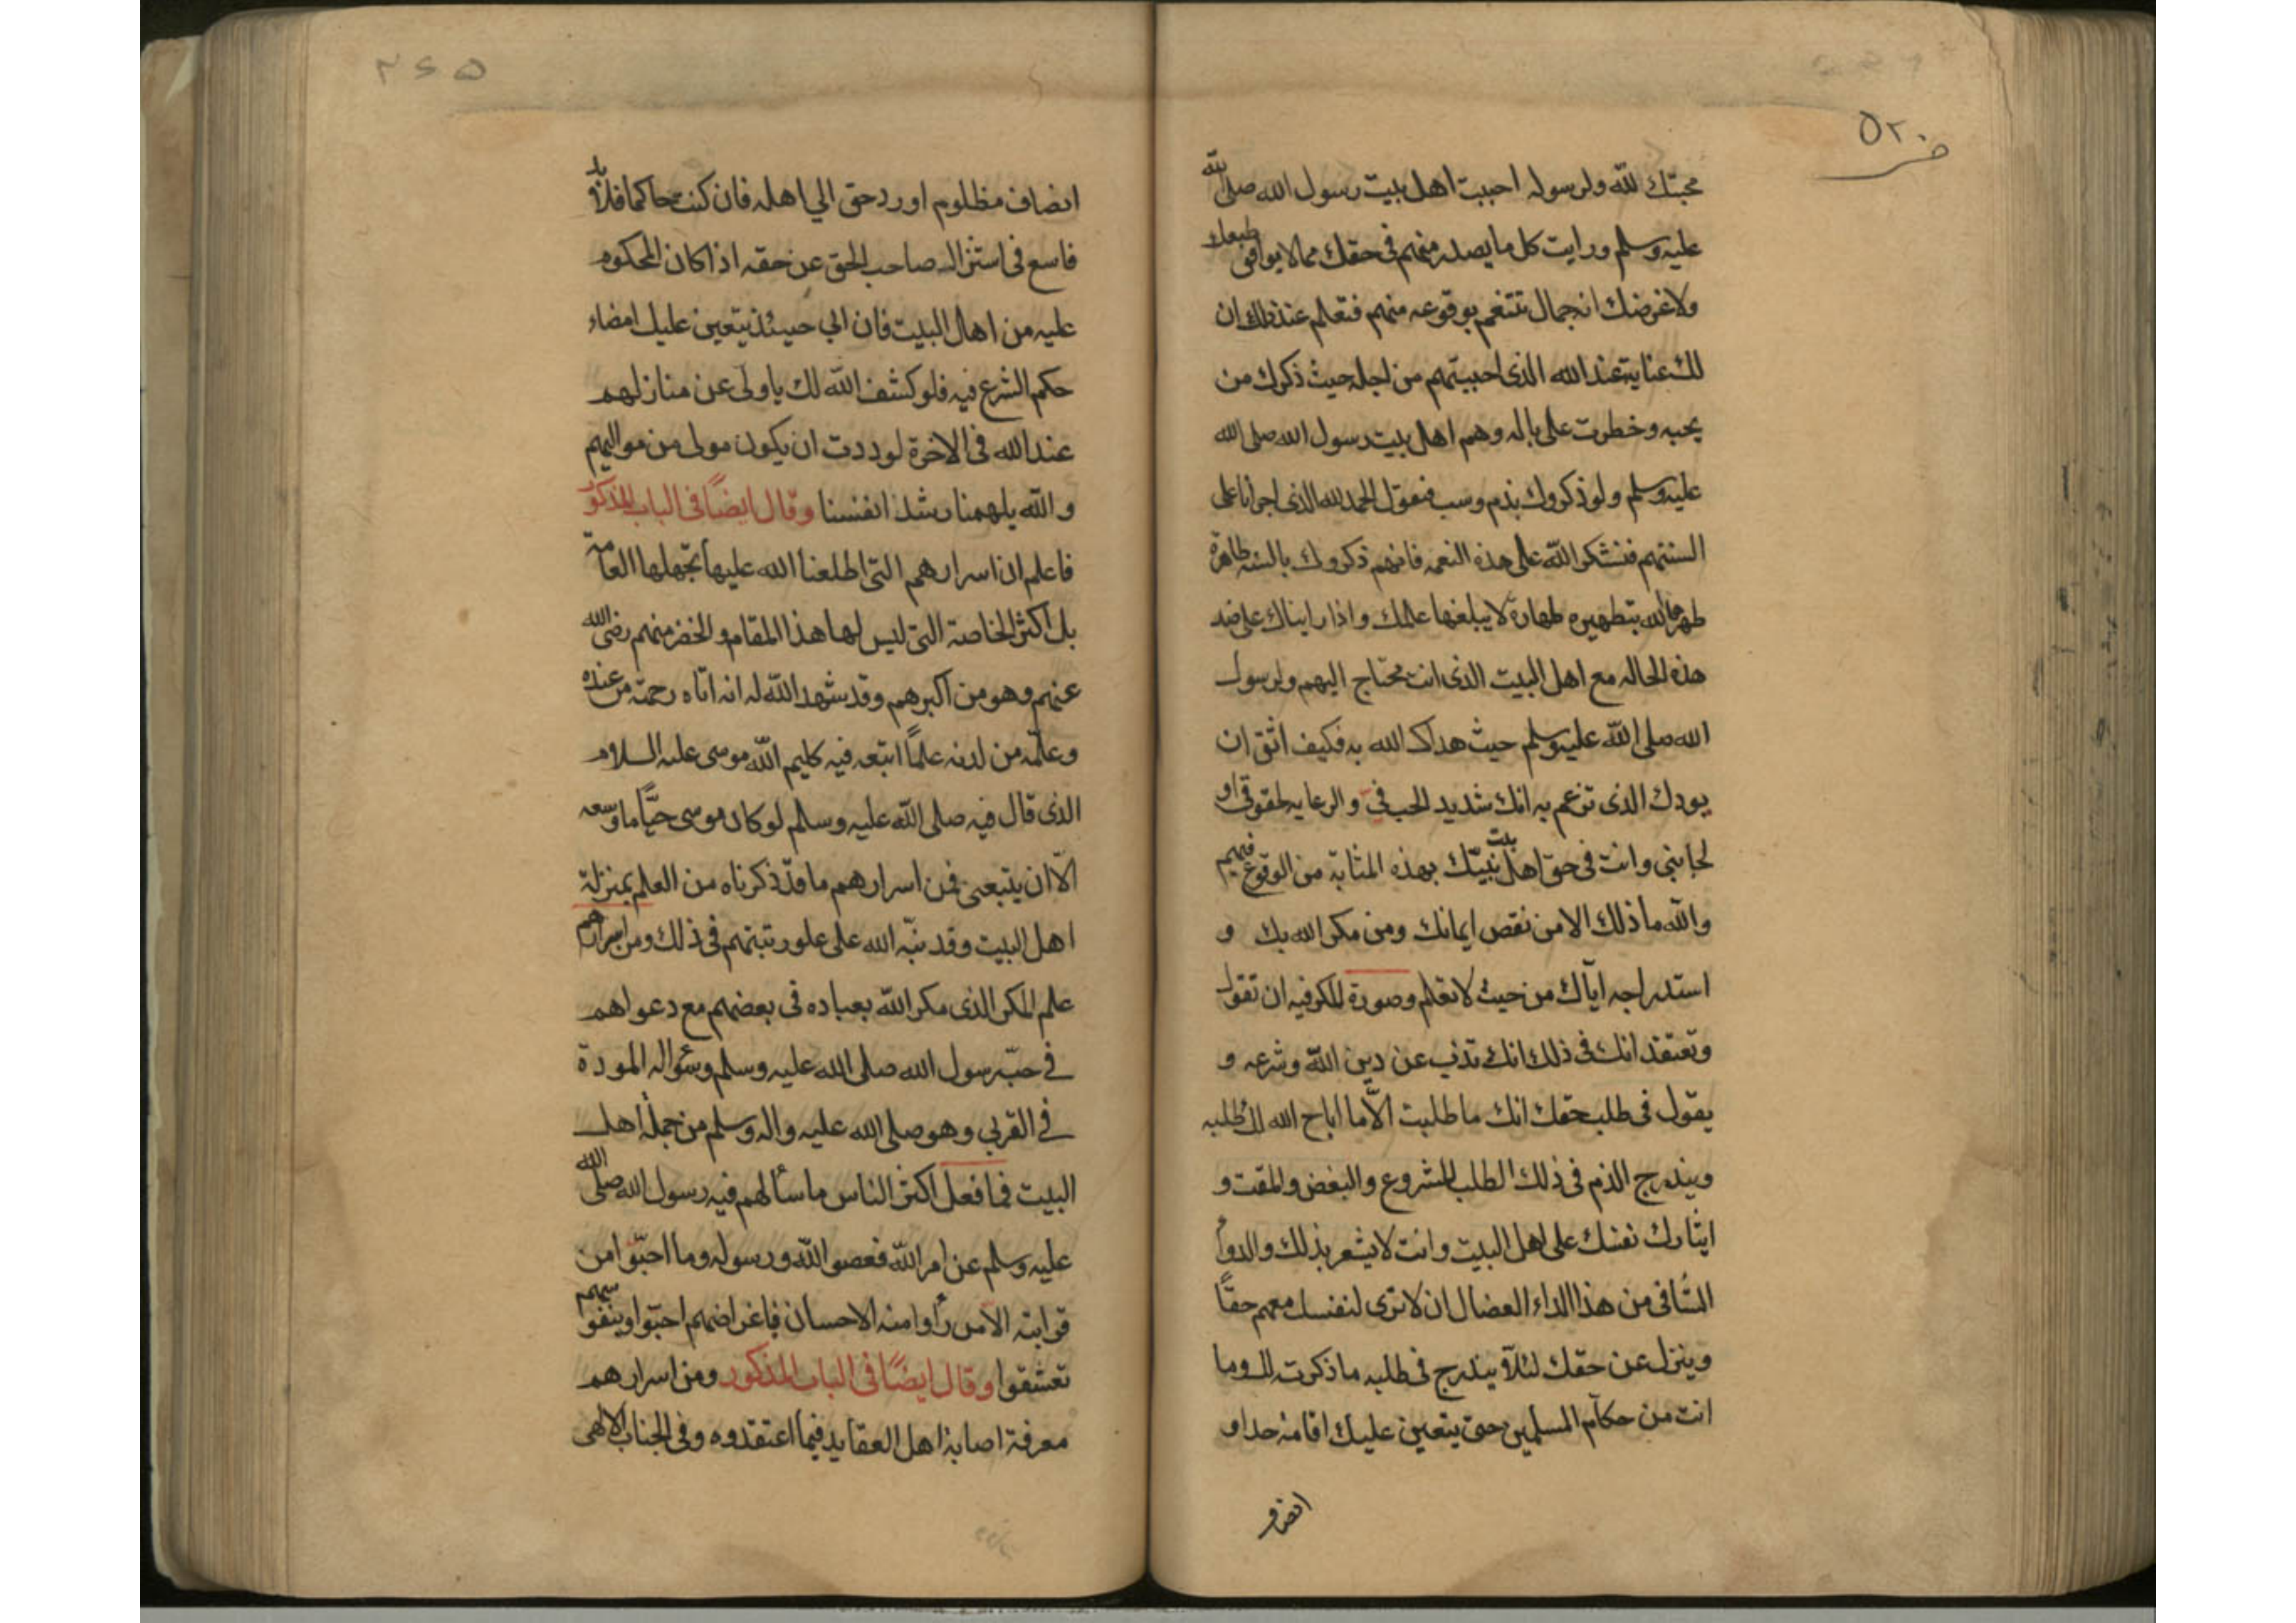 ٥٢٠
محبتك لله ولرسوله احببت اهل بيت رسول الله صلى الله
عليه وسلم ورايت كل ما يصدر منهم في حقك مما لا يوافق طبعك
ولا غرضك انه جمال تتنعم بوقوعه منهم فتعلم عند ذلك ان
لك عناية عند الله الذى احببتهم من اجله حيث ذكرك من
يحبه وخطرت على باله وهم اهل بيت رسول الله صلى الله
عليه وسلم ولو ذكروك بذم وسب فتقول الحمد لله الذى اجرانا على
السنتهم فنشكر الله على هذه النعمه فانهم ذكروك بالسنه طاهرة
طهرها الله بتطهيره طهارة لا يبلغها علمك واذا رايناك على ضد
هذه الحاله مع اهل البيت الذى انت محتاج اليهم ولرسول
الله صلى الله عليه وسلم حيث هداك الله به فكيف اثق ان
بودك الذى تزعم به انك شديد الحب فيّ والرعايه لحقوقى او
لجانبى وانت فى حق اهل بيت نبيّك بهذه المثابة من الوقوع فيهم
والله ما ذلك الا من نقص ايمانك ومن مكر الله بك و
استدراجه اياك من حيث لا تعلم وصورة المكر فيه ان تقول
وتعتقد انك فى ذلك انك تذب عن دين الله وشرعه و
يقول فى طلب حقك انك ما طلبت الّا ما اباح الله لك طلبه
ويندرج الذم فى ذلك الطلب المشروع والبغض والمقت و
ايثارك نفسك على اهل البيت وانت لا يشعر بذلك والدوأ
الشافى من هذا الداء العضال ان لا ترى لنفسك معهم حقًا
وينزل عن حقك لئلّا يندرج فى طلبه ما ذكرت لك وما
انت من حكام المسلمين حتى يتعين عليك اقامة حد او
٢٦٥
انصاف مظلوم او رد حق الي اهله فان كنت حاكما فلا بد
فاسع فى استنزال صاحب الحق عن حقه اذا كان المحكوم
عليه من اهل البيت فان ابي حينئذ يتعين عليك امضاء
حكم الشرع فيه فلو كشف الله لك يا ولى عن منازلهم
عند الله فى الاخرة لوددت ان يكون مولى من مواليهم
والله يلهمنا رشد انفسنا وقال ايضًا فى الباب المذكور
فاعلم ان اسرارهم التى اطلعنا الله عليها تجهلها العامّة
بل اكثر الخاصة التى ليس لها هذا المقام والخضر منهم رضى الله
عنهم وهو من اكبرهم وقد شهد الله له انه اتاه رحمة من عنده
وعلّمه من لدنه علمًا اتبعه فيه كليم الله موسى عليه السلام
الذى قال فيه صلى الله عليه وسلم لو كان موسى حيًّا ما وسعه
الّا ان يتبعنى فمن اسرارهم ما قد ذكرناه من العلم بمنزلة
اهل البيت وقد نبّه الله على علو رتبتهم فى ذلك ومن اسرارهم
علم المكر الذى مكر الله بعباده فى بعضهم مع دعواهم
في حبّ رسول الله صلى الله عليه وسلم وسؤاله المودة
في القربي وهو صلى الله عليه واله وسلم من جملة اهل
البيت فما فعل اكثر الناس ما سألهم فيه رسول الله صلى الله
عليه وسلم عن امر الله فعصوا الله ورسوله وما احبّوا من
قرابته الا من رأوا منه الاحسان فاغراضهم احبّوا وبنفوسهم
تعشقوا وقال ايضًا فى الباب المذكور ومن اسرارهم
معرفة اصابة اهل العقايد فيما اعتقدوه وفى الجناب الالهى